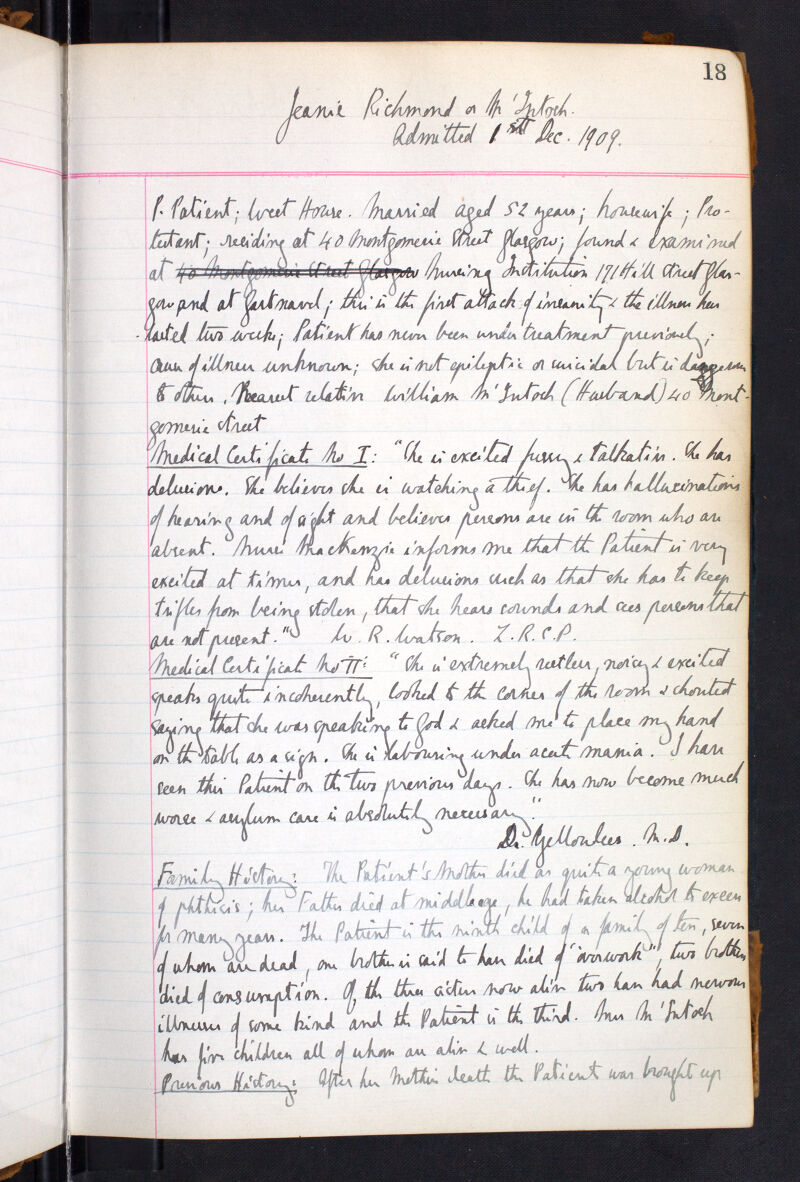 18
Jeanie Richmond or McIntosh.
Admitted 1st Dec. 1909.
P. Patient; West House. Married aged 52 years; housewife; Pro-
testant; residing at 40 Montgomerie Street Glasgow; found & examined
at 40 Montgomerie Street Glasgow Nursing Institution 171 Hill Street Glas-
gow and at Gartnavel; this is the first attack of insanity & the illness has
lasted two weeks; Patient has never been under treatment previously;
cause of illness unknown; she is not epileptic or suicidal but is dangerous
to others. Nearest relative William McIntosh (Husband) 40 Mont-
gomerie Street
Medical Certificate No I: "She is excited fussy & talkative. She has
delusions. She believes she is watching a thief. She has hallucinations
of hearing and of sight and believes persons are in the room who are
absent. Nurse MacKenzie informs me that the Patient is very
excited at times, and has delusions such as that she has to keep
trifles from being stolen, that she hears sounds and sees persons that
are not present." W. R. Watson. L.R.C.P.
Medical Certificate No II: "She is extremely restless, noisy & excited
speaks quite incoherently, looked to the corner of the room & shouted
saying that she was speaking to God & asked me to place my hand
on the table as a sign. She is labouring under acute mania. I have
seen this Patient on the two previous days. She has now become much
worse & asylum care is absolutely necessary."
Dr. Yellowlees. M.D.
Family History: The Patient's Mother died as quite a young woman
of phthisis; her Father died at middle age, he had taken alcohol to excess
for many years. The Patient is the ninth child of a family of ten, seven
of whom are dead, one brother is said to have died of "overwork", two brothers
died of consumption. Of the three sisters now alive two have had nervous
illnesses of some kind and the Patient is the third. Mrs McIntosh
has five children all of whom are alive & well.
Previous History: After her Mothers death the Patient was brought up